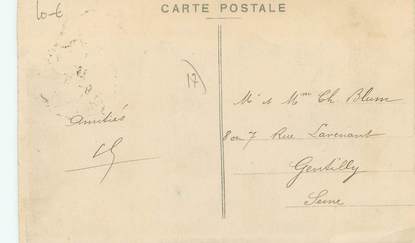 10-€
CARTE POSTALE
17)
Amitiés
Mr et Mme Ch. Blum
8 ou 7 Rue Lavenant
Gentilly
Seine